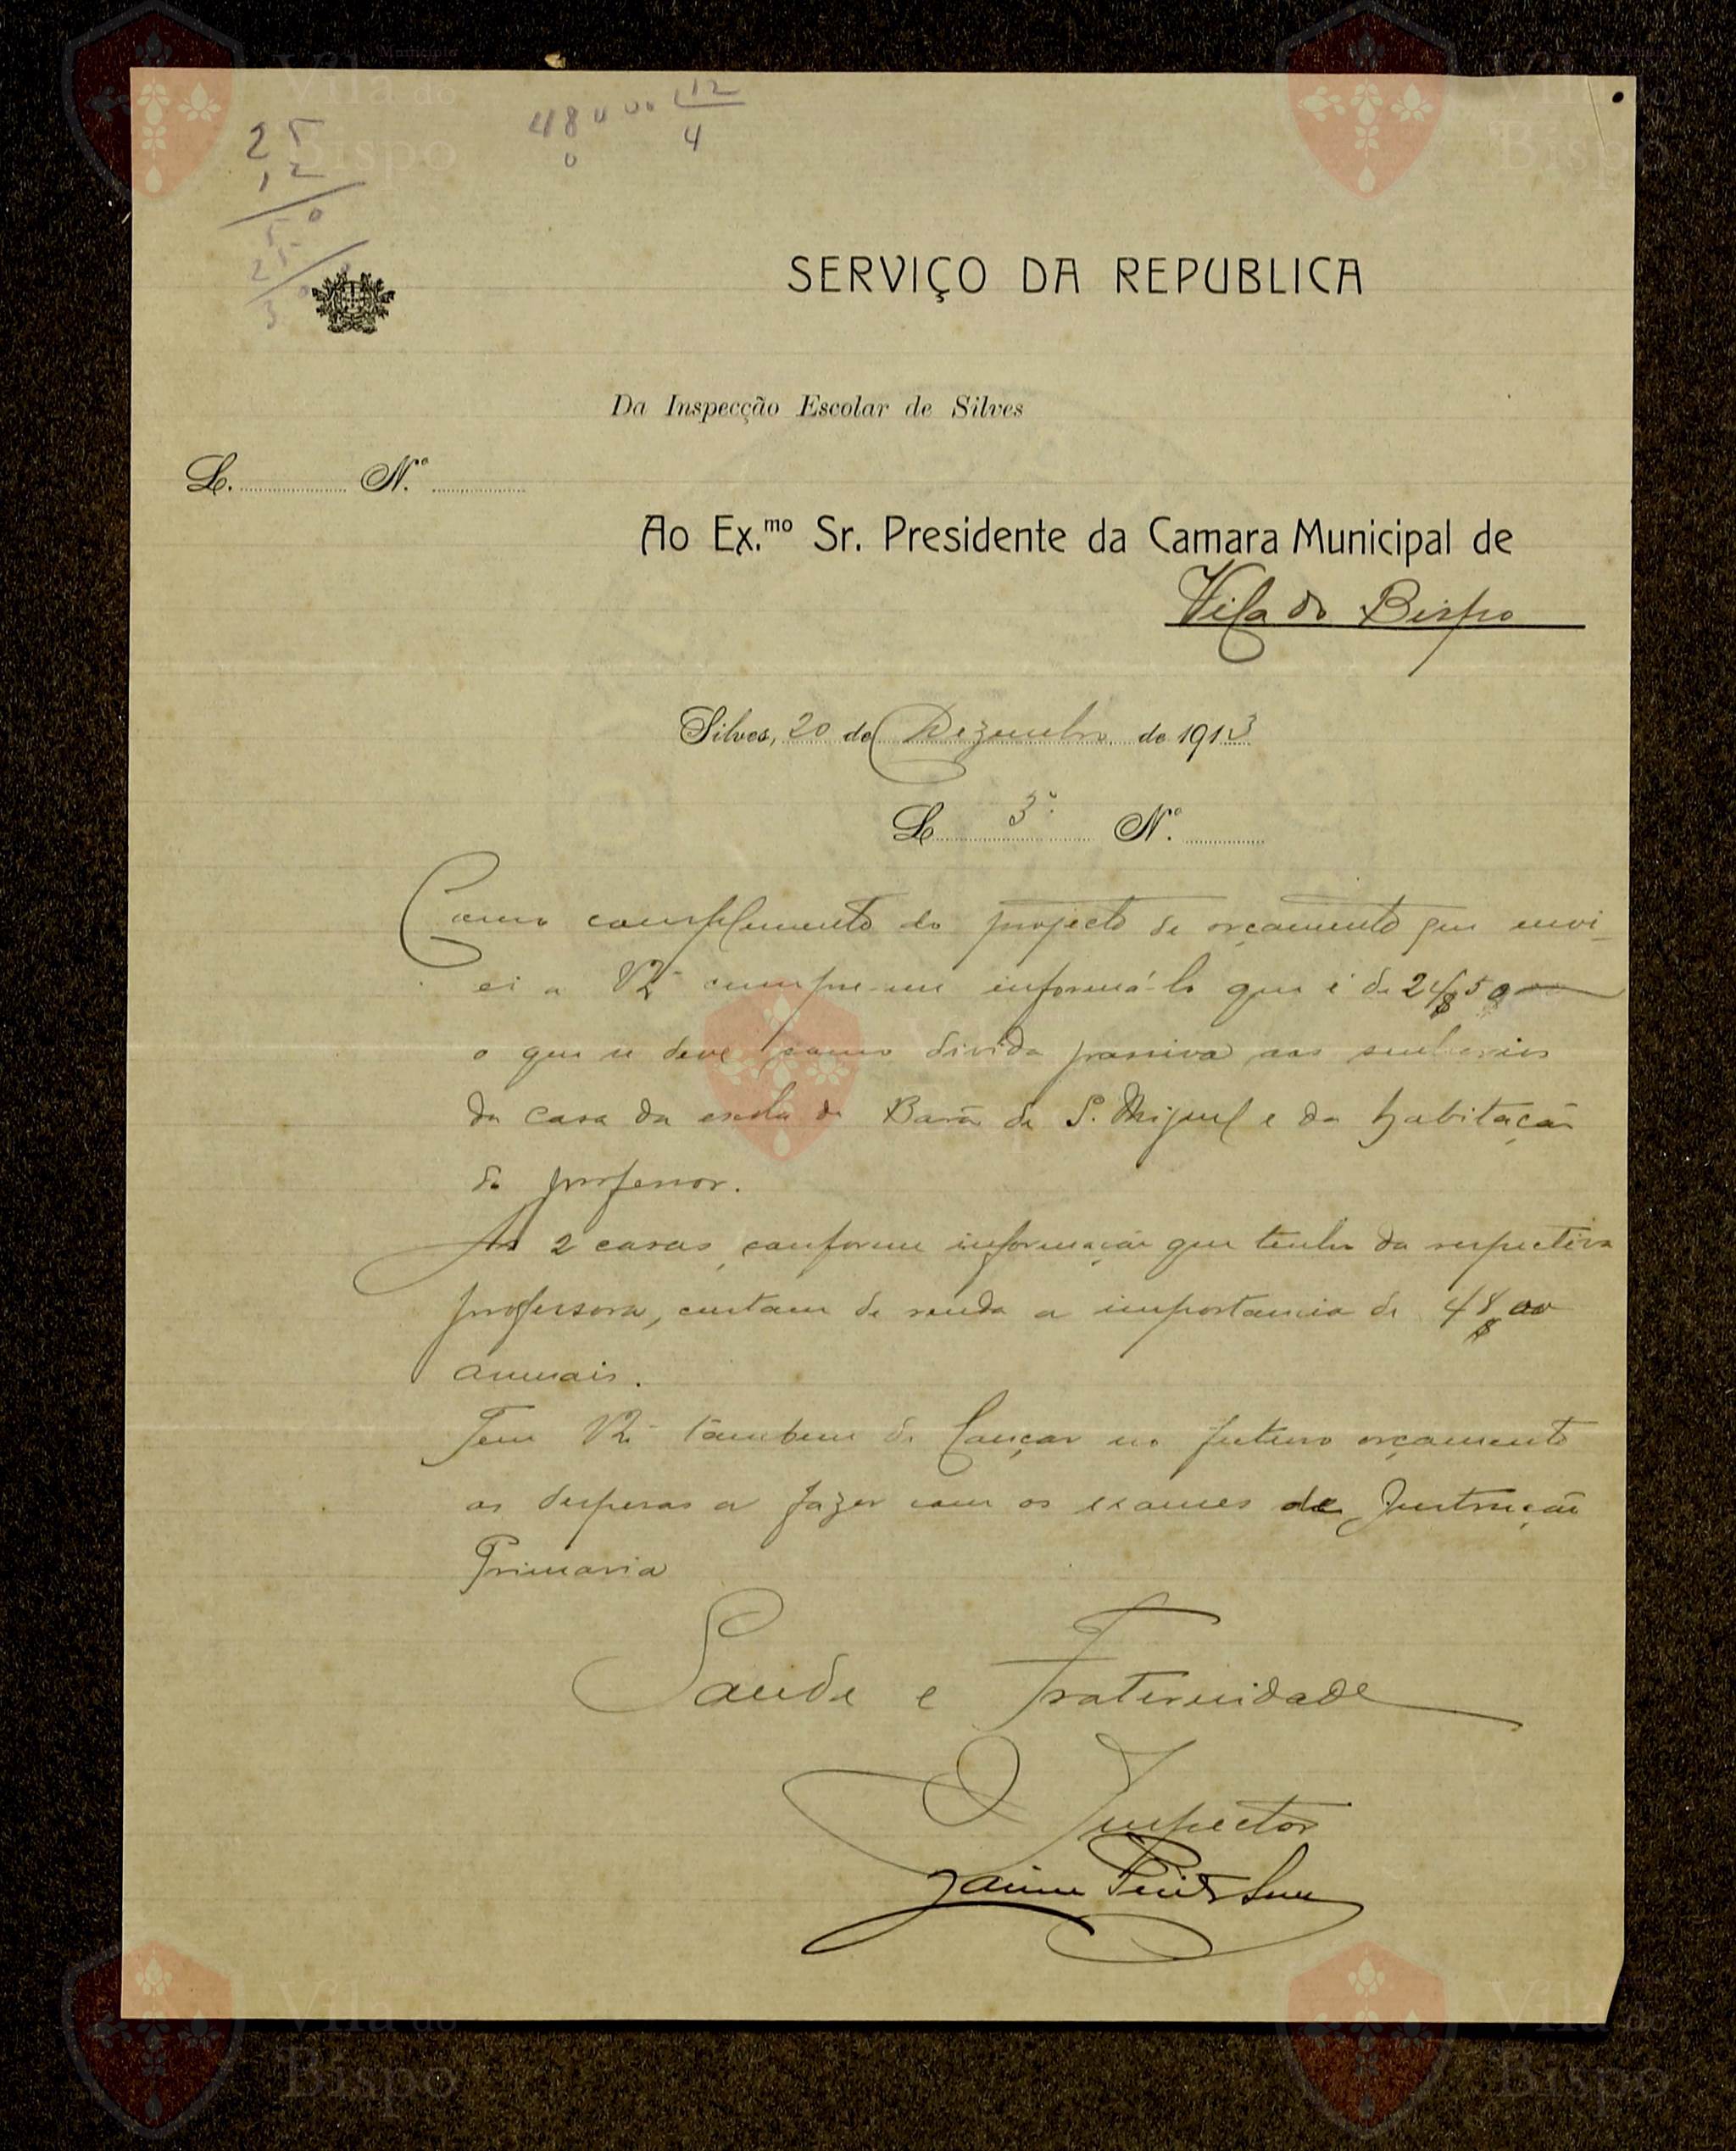 48 00 12
4
0
25
12
50
25
300
SERVIÇO DA REPUBLICA
Da Inspecção Escolar de Silves
L. N.º
Ao Ex.mo Sr. Presidente da Camara Municipal de
Vila do Bispo
Silves, 20 de Dezembro de 1913
L 3º N.º
Como complemento do projecto de orçamento que envi-
ei a cumpre-me informá-lo que é de
o que se deve como divida passiva aos senhorios
da casa da escola de Barão de S. Miguel e da habitação
do professor.
As 2 casas, conforme informação que tenho da respectiva
professora, custam de renda a importancia de 48$00
anuais.
Tem tambem de lançar no futuro orçamento
as despesas a fazer com os exames de Instrução
Primaria
Saude e Fraternidade
O Inspector
Jaime
Município
Vila do
Bispo